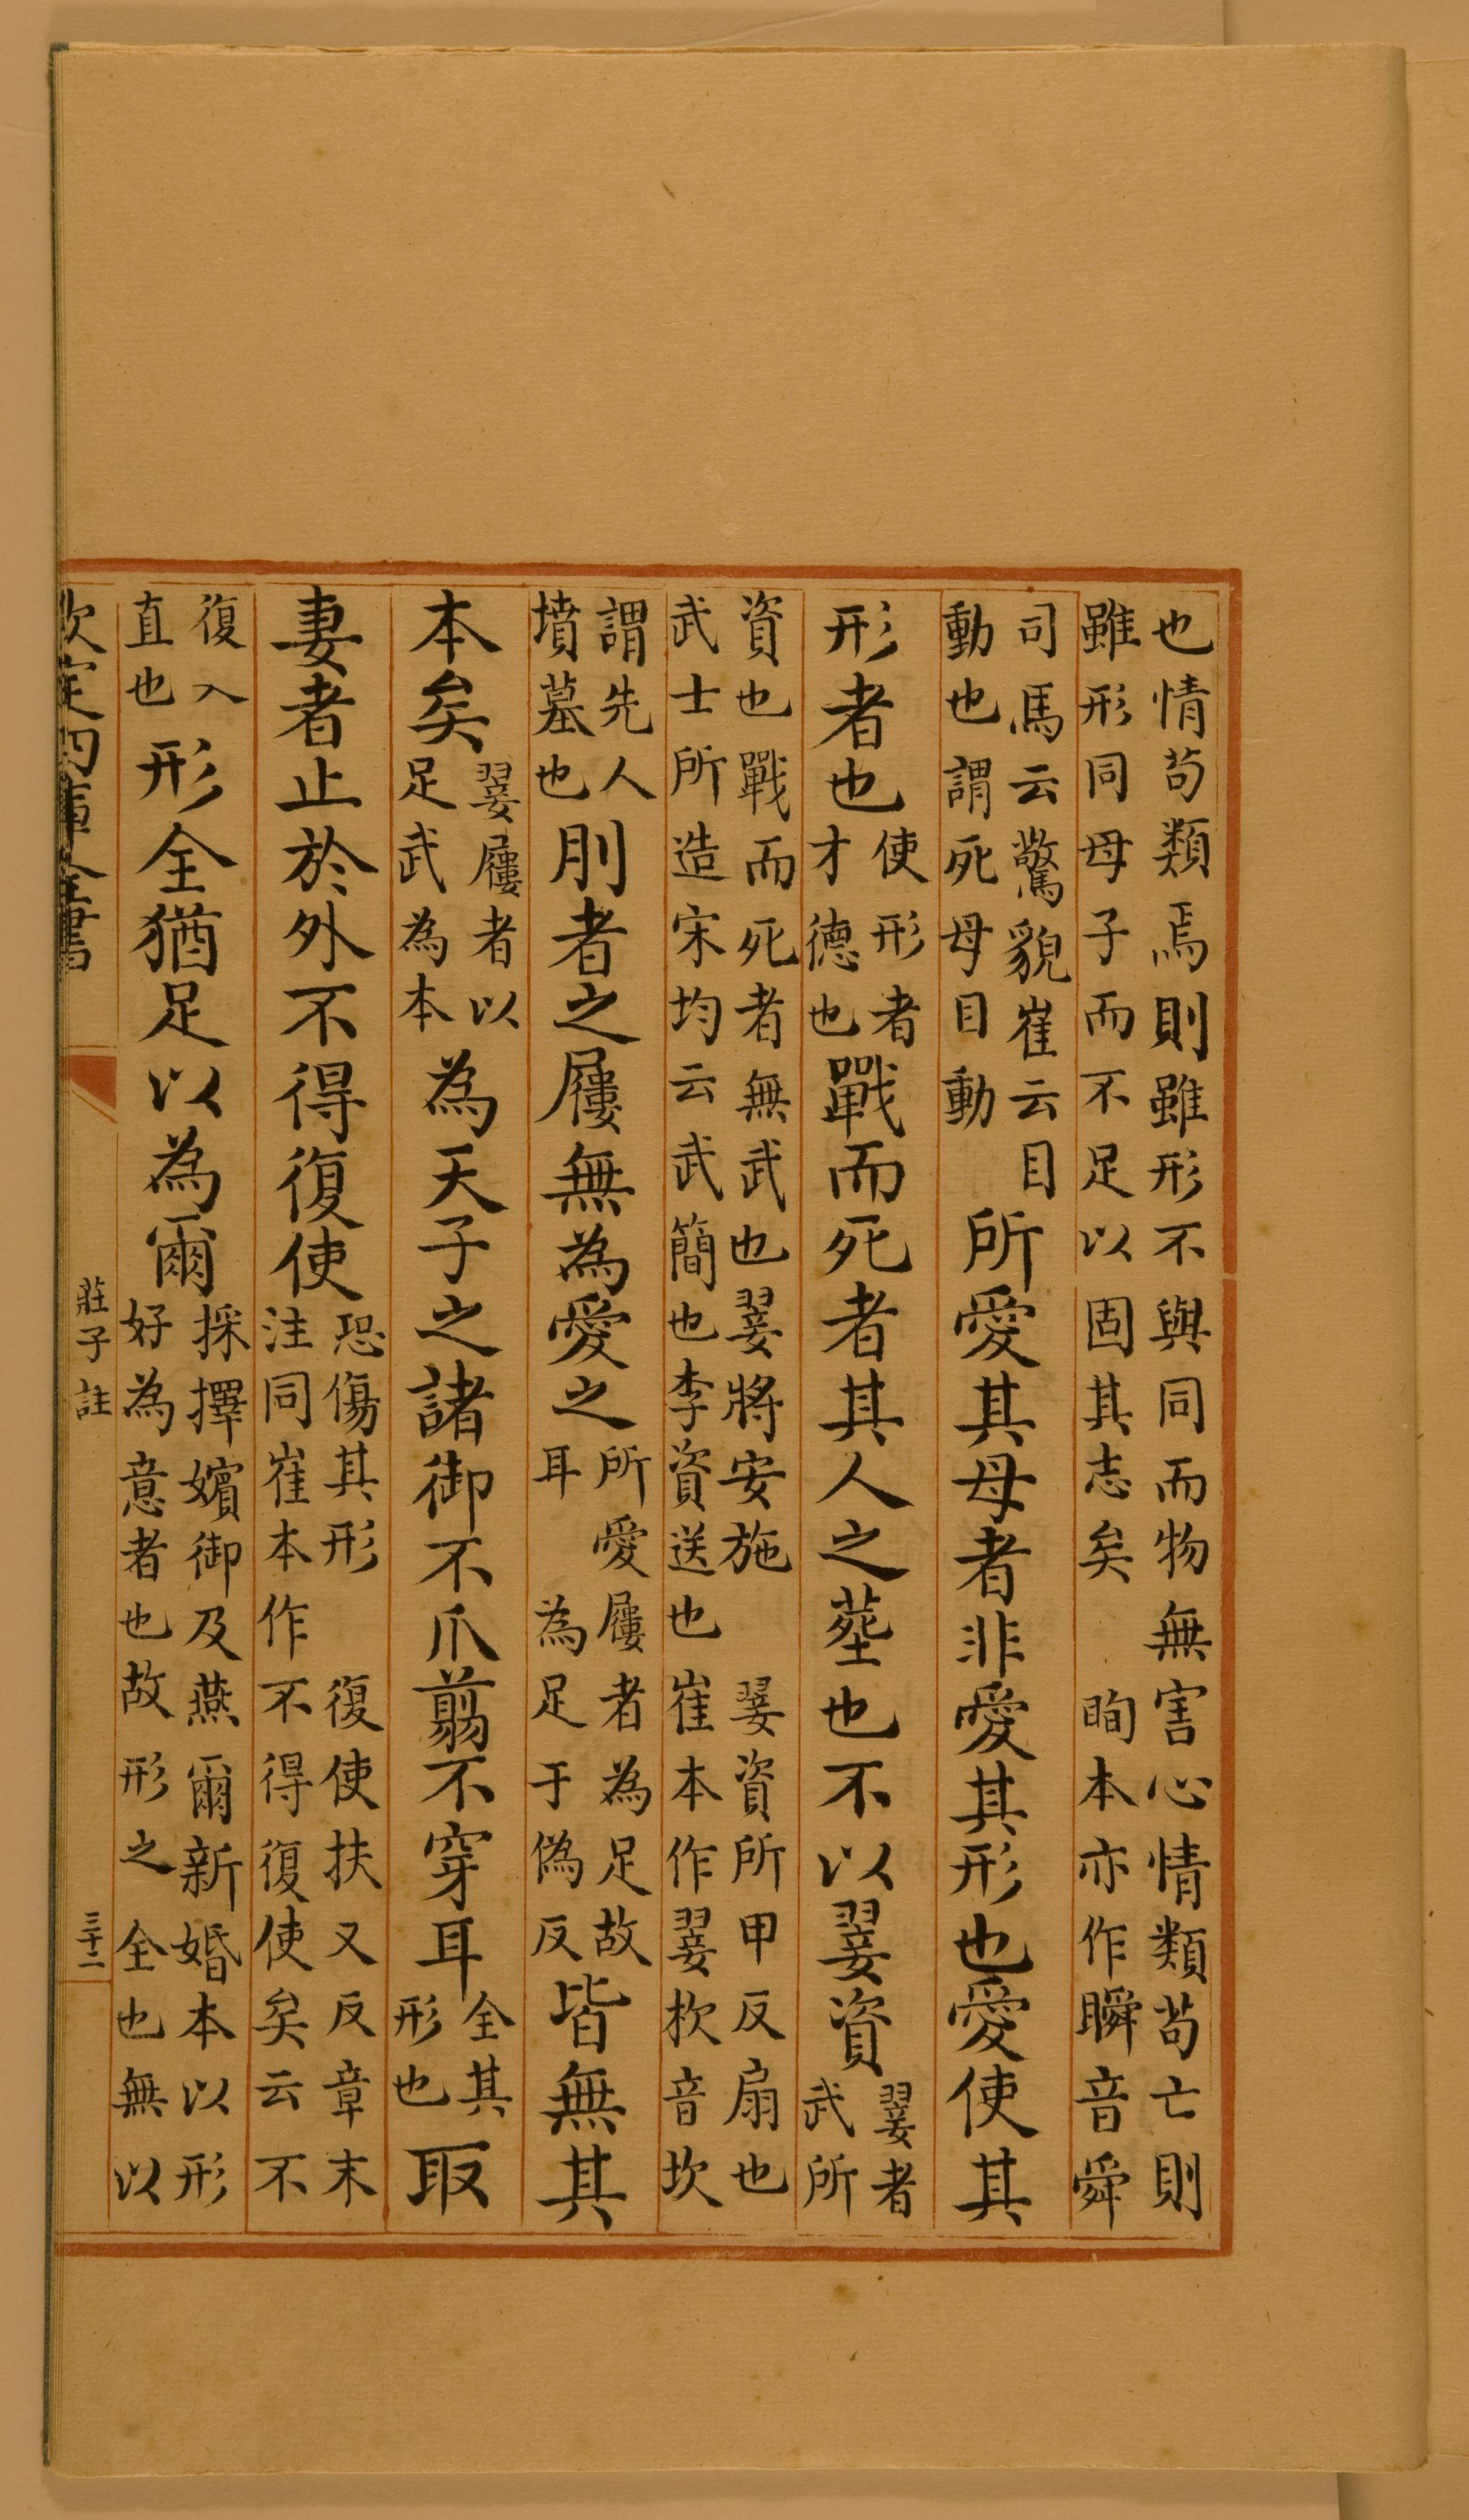 也情苟類焉則雖形不與同而物無害心情類苟亡則
雖形同母子而不足以固其志矣 眴本亦作瞬音舜
司馬云驚貌崔云目
動也謂死母目動
所愛其母者非愛其形也愛使其
形者也
使形者
才德也
戰而死者其人之塟也不以翣資
翣者
武所
資也戰而死者無武也翣將安施 翣資所甲反扇也
武士所造宋均云武武簡也李資送也崔本作翣杴音坎
謂先人
墳墓也
刖者之屨無為愛之
所愛屨者為足故
耳 為足于偽反
皆無其
本矣
翣屨者以
足武為本
為天子之諸御不爪翦不穿耳
全其
形也
取
妻者止於外不得復使
恐傷其形 復使扶又反章末
注同崔本作不得復使矣云不
復入
直也
形全猶足以為爾
採擇嬪御及燕爾新婚本以形
好為意者也故形之全也無以
欽定四庫全書
莊子註
三十二